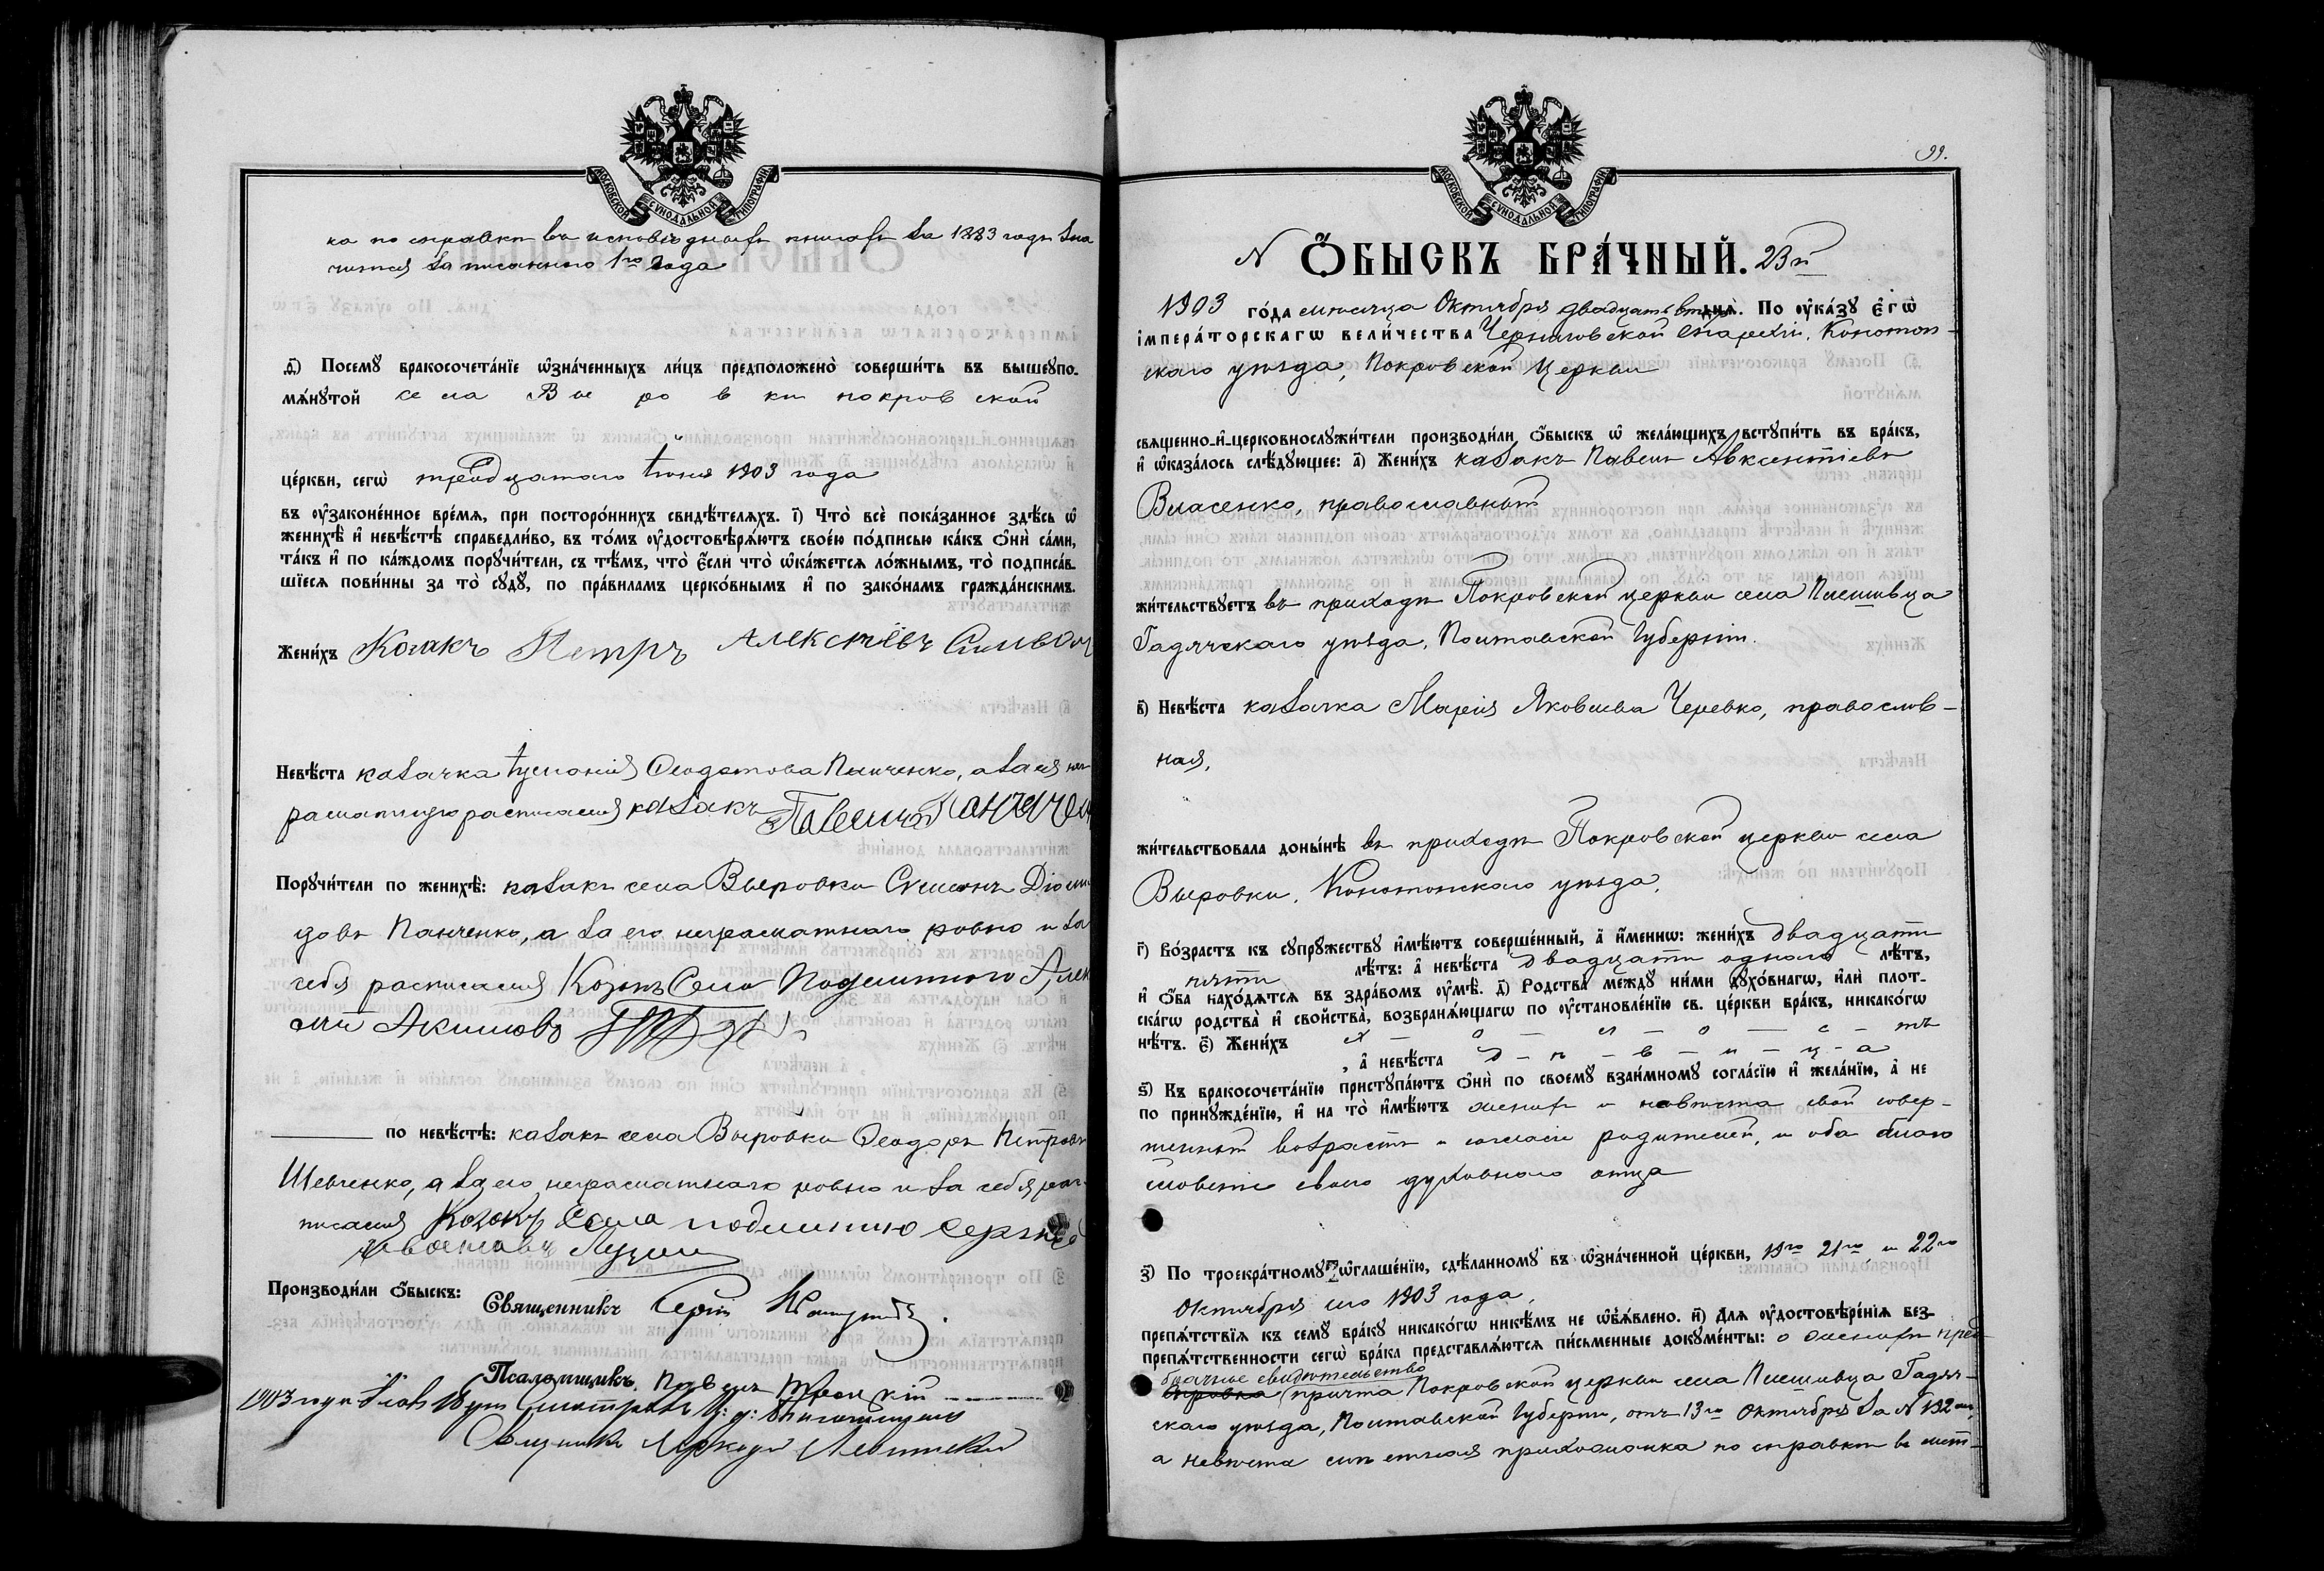 МОСКОВСКОЙ СѴНОДАЛЬНОЙ ТИПОГРАФІИ
ка по справкѣ въ исповѣдныхъ книгахъ за 1883 годъ зна
чится записанною 1го года
д҃і) Посемꙋ бракосочета́нїе ѡ҆зна́ченныхъ ли́цъ предположено̀ соверши́ть въ вышеꙋпо-
мѧ́нꙋтой села Выровки покровской
це́ркви, сегѡ̀ тридцатого Іюня 1903 года
въ оу҆законе́нное вре́мѧ, при посторо́ннихъ свидѣ́телѧхъ. і҃) Что̀ всѐ пока́занное здѣ́сь ѡ҆
женихѣ̀ и҆ невѣ́стѣ справедли́во, въ то́мъ оу҆достовѣрѧ́ютъ свое́ю по́дписью ка́къ ѻ҆нѝ са́ми,
та́къ и҆ по ка́ждомъ порꙋчи́тели, съ тѣ́мъ, что̀ є҆́сли что̀ ѡ҆ка́жетсѧ ло́жнымъ, то̀ подписа́в-
шїесѧ пови́нны за то̀ сꙋдꙋ̀, по пра́виламъ церко́внымъ и҆ по зако́намъ гражда́нскимъ.
Жени́хъ Козакъ Петръ Алексѣевъ
Невѣ́ста казачка Іуліанія Ѳеодотова Панченко, а за ея не
грамотную росписался казакъ Павелъ Панчен
Порꙋчи́тели по женихѣ̀: казакъ села Выровки Симеонъ Діоми
довъ Панченко, а за его неграмотнаго ровно и за
себя росписался Козакъ Села Подлипного Алек
сѣй Акимовъ
по невѣ́стѣ: казакъ села Выровки Ѳеодоръ Петровъ
Шевченко, а за его неграмотнаго ровно и за себя рос-
писался Козакъ Села подлипного Сергѣй
Производи́ли ѻ҆́быскъ: Священникъ
Псаломщикъ Павелъ Троицкій
1903 года Смотрѣлъ И. д. Благочиннаго
Священникъ Левитскій
99.
МОСКОВСКОЙ СѴНОДАЛЬНОЙ ТИПОГРАФІИ
N ѺБЫСКЪ БРА́ЧНЫЙ. 23й
1903 го́да мѣсяца Октября двадцать втор дня̀. По оу҆ка́зꙋ є҆гѡ̀
і҆мпера́торскагѡ вели́чества Черниговской епархіи, Конотоп-
скаго уѣзда, Покровской Церкви
свѧщенно-и҆-церковнослꙋжи́тели производи́ли ѻ҆́быскъ ѡ҆ жела́ющихъ встꙋпи́ть въ бра́къ,
и҆ ѡ҆каза́лось слѣ́дꙋющее: а҃) Жени́хъ казакъ Павелъ Авксентіевъ
Власенко, православный
жи́тельствꙋетъ въ приходѣ Покровской церкви села Плешивца
Гадячскаго уѣзда, Полтавской Губерніи.
в҃) Невѣ́ста казачка Марія Яковлева Черевко, православ-
ная,
жи́тельствовала доны́нѣ въ приходѣ Покровской церкви села
Выровки, Конотопскаго уѣзда,
г҃) Во́зрастъ къ сꙋпрꙋ́жествꙋ и҆мѣ́ютъ соверше́нный, а҆ и҆́менно: жени́хъ двадцати
пяти лѣ́тъ: а҆ невѣ́ста двадцати одного лѣ́тъ,
и҆ ѻ҆́ба нахо́дѧтсѧ въ здра́вомъ оу҆мѣ̀. д҃) Родства̀ междꙋ ни́ми дꙋхо́внагѡ, и҆лѝ плот-
ска́гѡ родства̀ и҆ свойства̀, возбранѧ́ющагѡ по оу҆становле́нїю св. це́ркви бра́къ, никако́гѡ
нѣ́тъ. є҃) Жени́хъ х - о - л - о - с - тъ
, а҆ невѣ́ста д - ѣ - в - и - ц - а
ѕ҃) Къ бракосочета́нїю пристꙋпа́ютъ ѻ҆нѝ по своемꙋ̀ взаи́мномꙋ согла́сїю и҆ жела́нїю, а҆ не
по принꙋжде́нїю, и҆ на то̀ и҆мѣ́ютъ женихъ и невѣста свой совер-
шенный возрастъ и согласіе родителей, и оба благо
словеніе своего духовнаго отца
з҃) По троекра́тномꙋ ѡ҆глаше́нїю, сдѣ́ланномꙋ въ ѡ҆зна́ченной це́ркви, 19го 21го и 22го
Октября сего 1903 года,
препѧ́тствїѧ къ семꙋ̀ бра́кꙋ никако́гѡ никѣ́мъ не ѡ҆б̾ѧ́влено. и҃) Для оу҆достовѣре́нїѧ без-
препѧ́тственности сегѡ̀ бра́ка представлѧ́ютсѧ пи́сьменные докꙋме́нты: о женихѣ пред-
брачное свидѣтельство
справка причта Покровской церкви села Плешивца Гадяч-
скаго уѣзда, Полтавской Губерніи, отъ 13го Октября за N 132
а невѣста прихожанка по справкѣ въ метр-